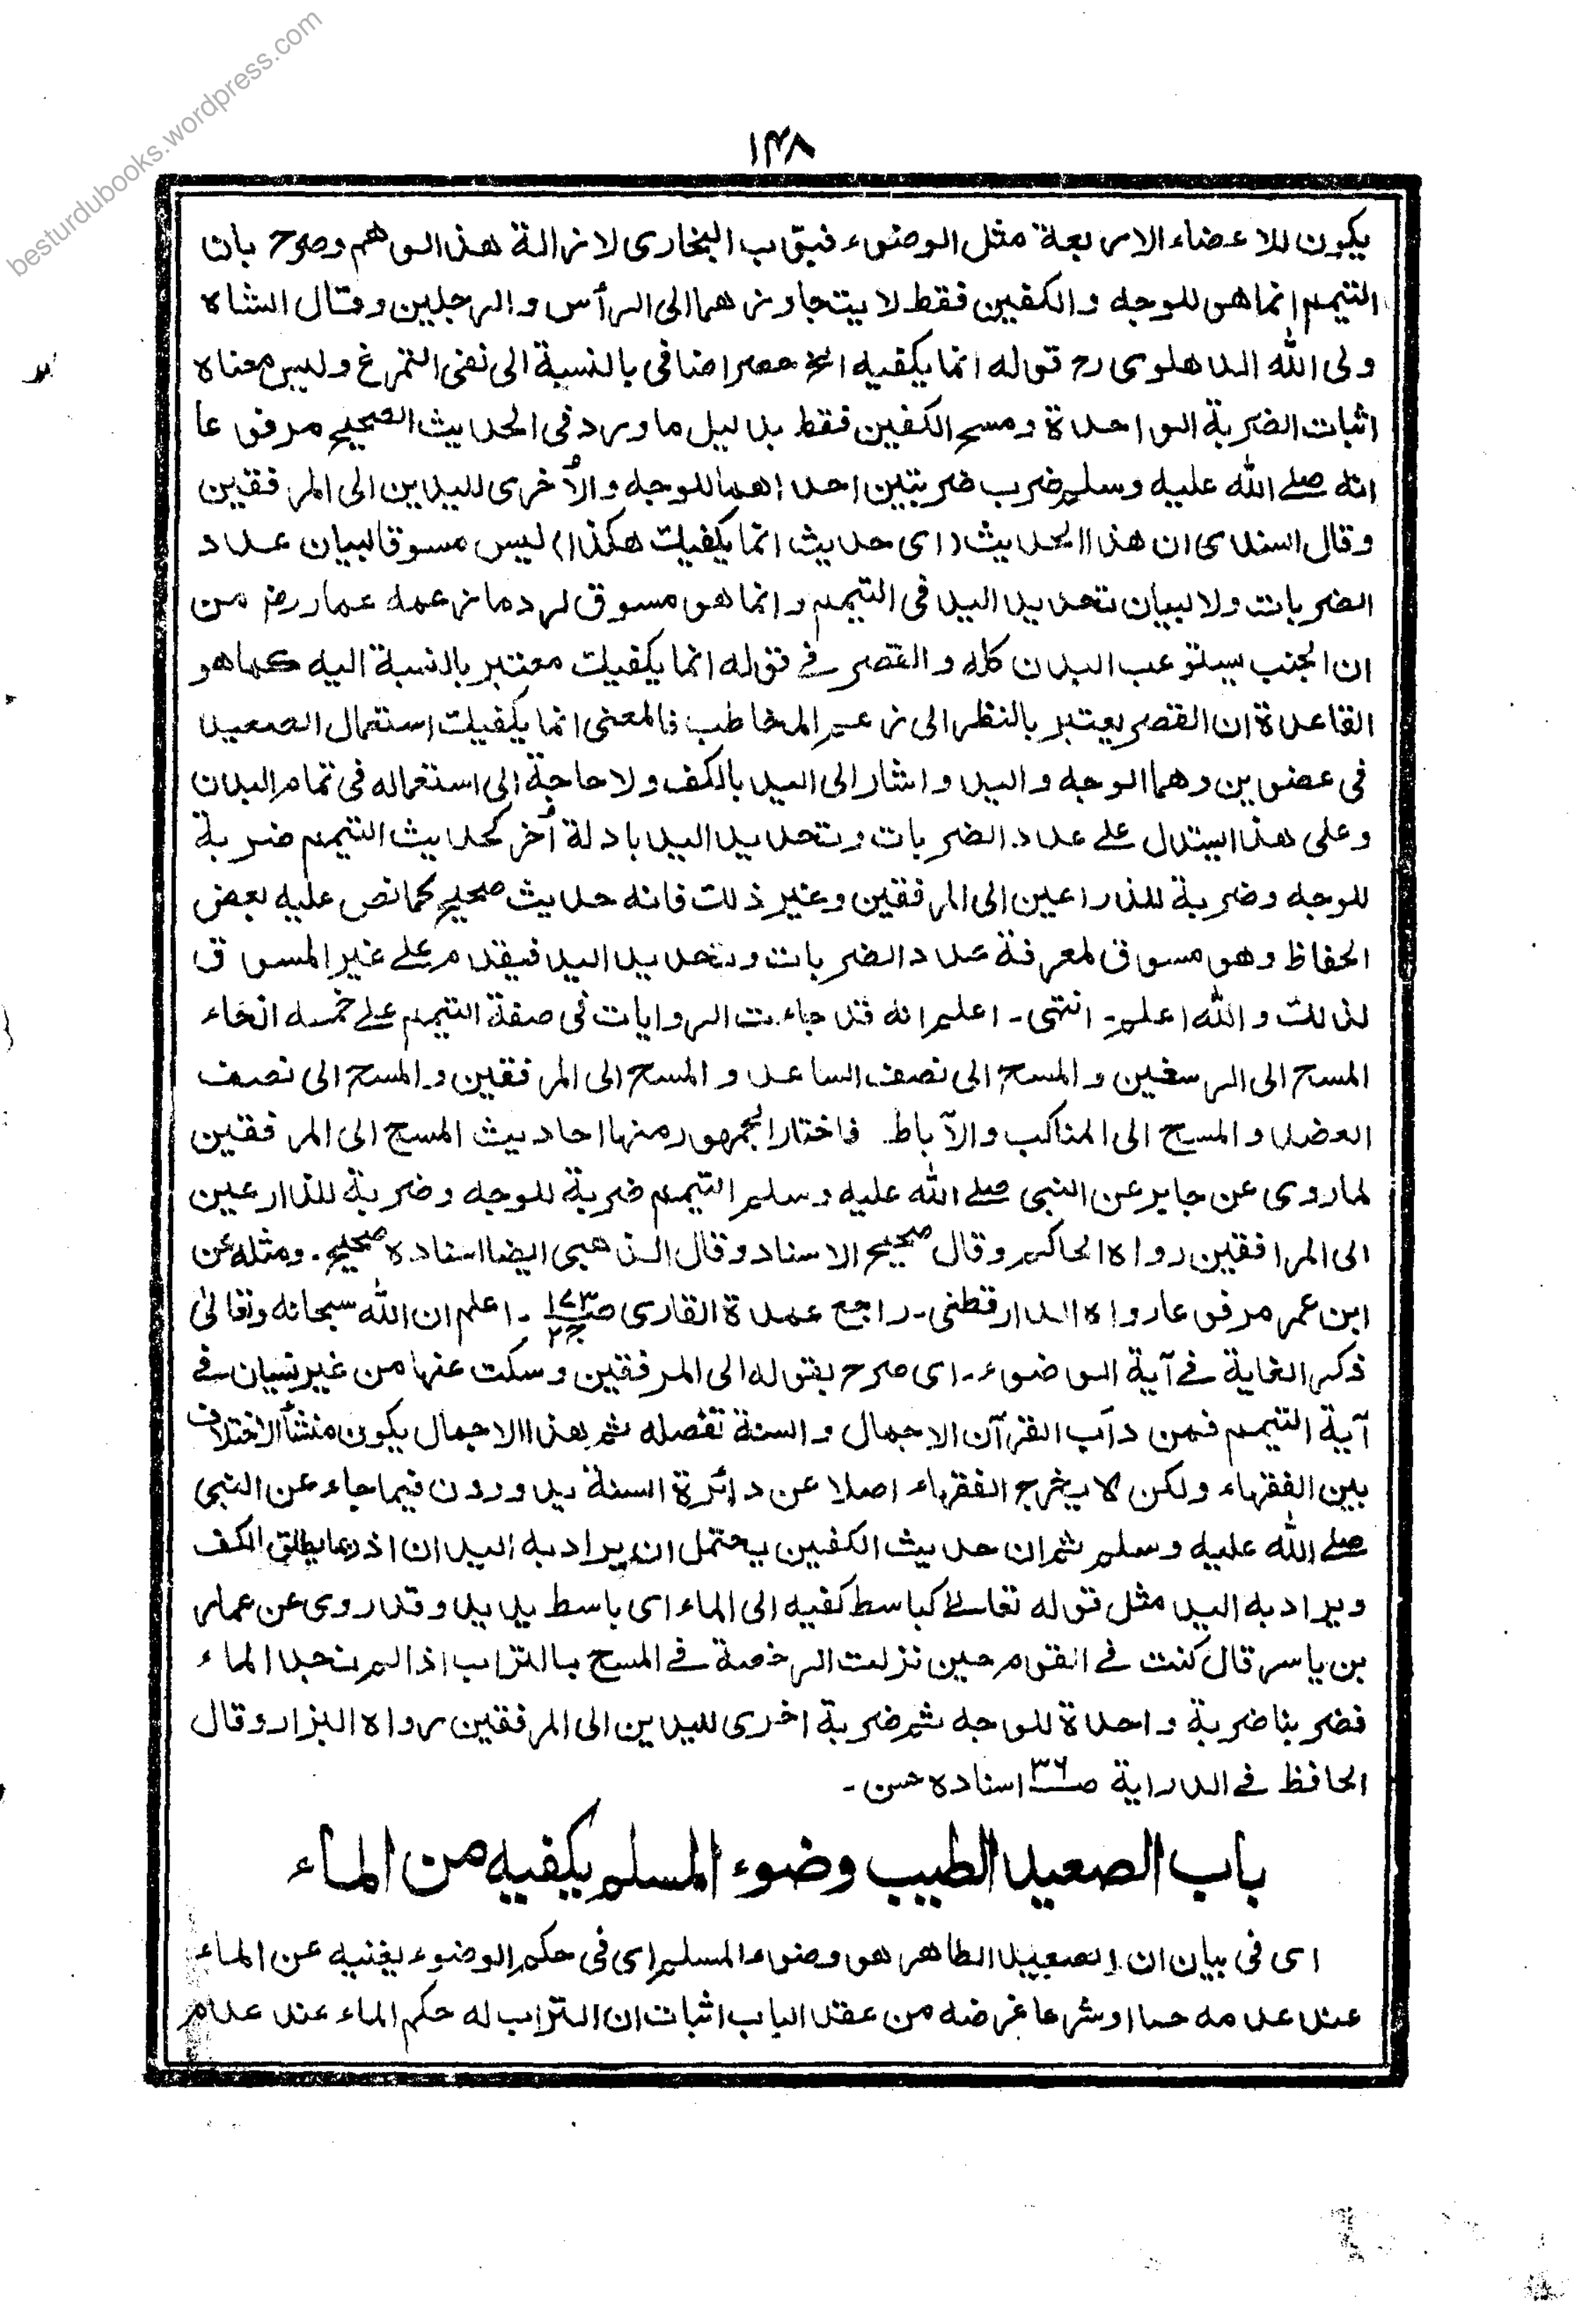 besturdubooks.wordpress.com
۱۴۸
يكون للاعضاء الاربعة مثل الوضوء فبوّب البخارى لازالة هذا الوهم وصرح بان
التيمم انما هو للوجه والكفين فقط لا يتجاوزهما الى الرأس والرجلين وقال الشاه
ولى الله الدهلوى رح قوله انما يكفيه الخ حصر اضافى بالنسبة الى نفى التمرغ وليس معناه
اثبات الضربة الواحدة ومسح الكفين فقط بدليل ما ورد فى الحديث الصحيح مرفوعا
انه صلے الله عليه وسلم ضرب ضربتين احداهما للوجه والأخرى لليدين الى المرفقين
وقال السندى ان هذا الحديث (اى حديث انما يكفيك هكذا) ليس مسوقا لبيان عدد
الضربات ولا لبيان تحديد اليد فى التيمم وانما هو مسوق لرد ما زعمه عمار رض من
ان الجنب يستوعب البدن كله والقصر فے قوله انما يكفيك معتبر بالنسبة اليه كما هو
القاعدة ان القصر يعتبر بالنظر الى زعم المخاطب فالمعنى انما يكفيك استعمال الصعيد
فى عضوين وهما الوجه واليد واشار الى اليد بالكف ولا حاجة الى استعماله فى تمام البدن
وعلى هذا يستدل علے عدد الضربات وتحديد اليد بادلة أخر كحديث التيمم ضربة
للوجه وضربة للذراعين الى المرفقين وغير ذلك فانه حديث صحيح كما نص عليه بعض
الحفاظ وهو مسوق لمعرفة عدد الضربات وتحديد اليد فيقدم علے غير المسوق
لذلك والله اعلم۔ انتهى۔ اعلم انه قد جاءت الروايات فى صفة التيمم علے خمسه انحاء
المسح الى الرسغين والمسح الى نصف الساعد والمسح الى المرفقين والمسح الى نصف
العضد والمسح الى المناكب والآباط۔ فاختار الجمهور منها احاديث المسح الى المرفقين
لما روى عن جابر عن النبى صلے الله عليه وسلم التيمم ضربة للوجه وضربة للذارعين
الى المرافقين رواه الحاكم وقال صحيح الاسناد وقال الذهبى ايضا اسناده صحيح۔ ومثله عن
ابن عمر مرفوعا رواه الدارقطنى۔ راجع عمدة القارى صـ۱۷۳ جـ۲۔ اعلم ان الله سبحانه وتعالىٰ
ذكر الغاية فے آية الوضوء۔ اى صرح بقوله الى المرفقين وسكت عنها من غير نسيان فے
آية التيمم فمن دأب القرآن الاجمال والسنة تفصله ثم بهذا الاجمال يكون منشأ الاختلاف
بين الفقهاء ولكن لا يخرج الفقهاء اصلا عن دائرة السنة يدورون فيما جاء عن النبى
صلے الله عليه وسلم ثم ان حديث الكفين يحتمل ان يراد به اليدان اذ ربما يطلق الكف
ويراد به اليد مثل قوله تعالے كباسط كفيه الى الماء اى باسط يديه وقد روى عن عمار
بن ياسر قال كنت فے القوم حين نزلت الرخصة فے المسح بالتراب اذا لم نجد الماء
فضربنا ضربة واحدة للوجه ثم ضربة اخرى لليدين الى المرفقين رواه البزار وقال
الحافظ فے الدراية صـ۳۶ اسناده حسن۔
باب الصعيد الطيب وضوء المسلم يكفيه من الماء
اى فى بيان ان الصعيد الطاهر هو وضوء المسلم اى فى حكم الوضوء يغنيه عن الماء
عند عدمه حسا او شرعا غرضه من عقد الباب اثبات ان التراب له حكم الماء عند عدم